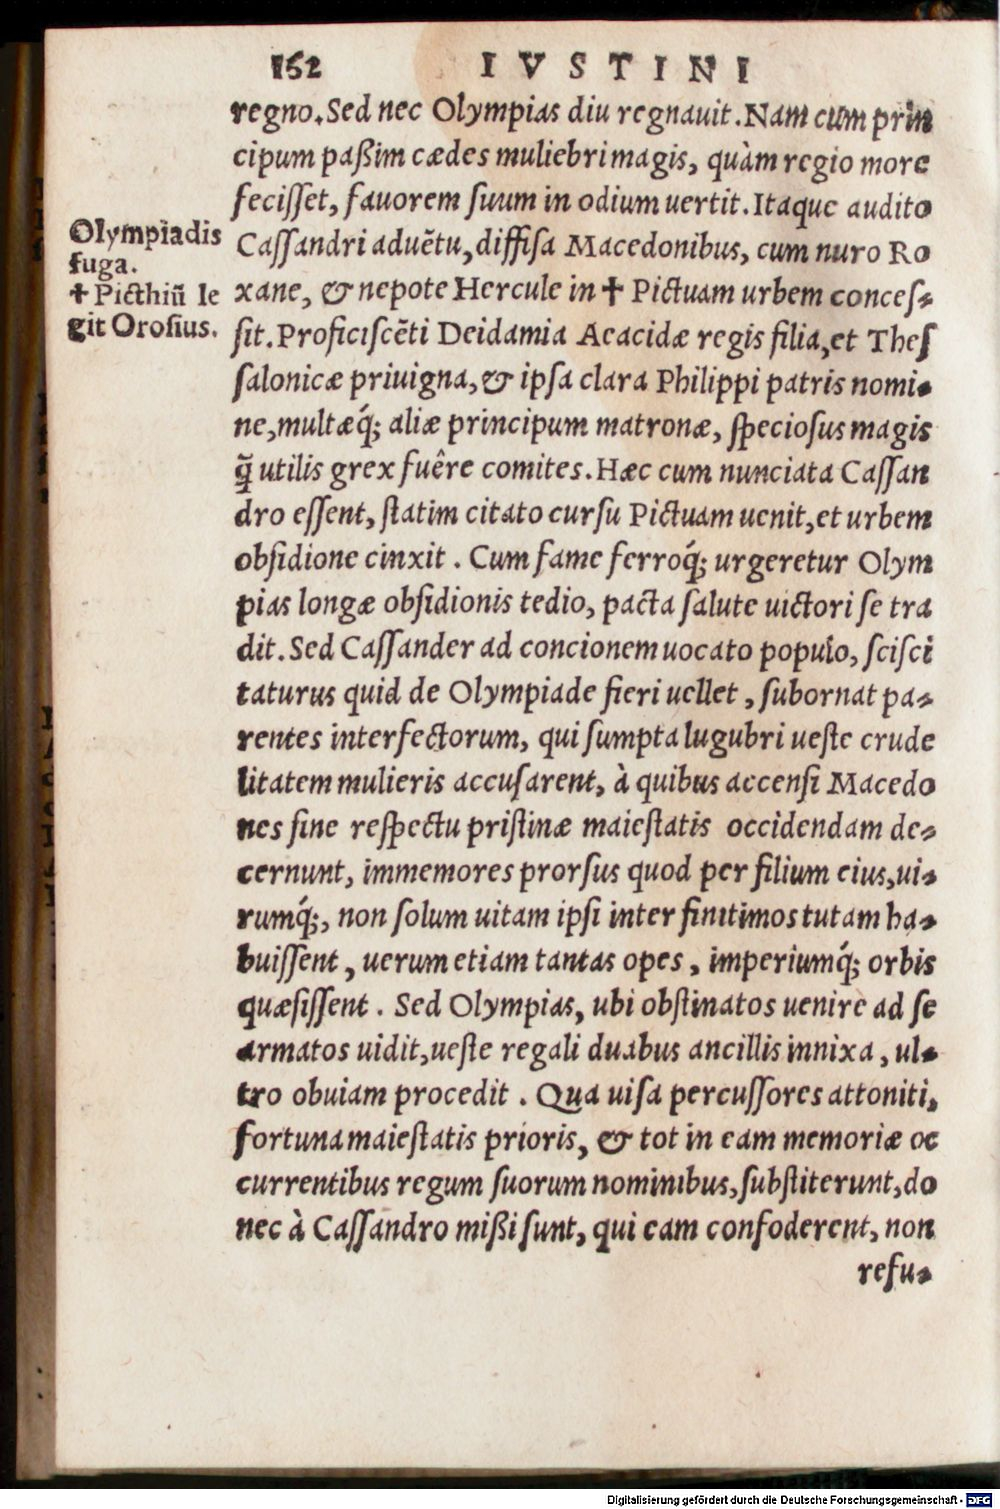 162 IVSTINI
regno. Sed nec Olympias diu regnauit. Nam cum prin
cipum paßim cædes muliebri magis, quàm regio more
feciſſet, fauorem ſuum in odium uertit. Itaque audito
Olympiadis
fuga.
✝ Picthiũ le
git Oroſius.
Caſſandri aduẽtu, diffiſa Macedonibus, cum nuro Ro
xane, & nepote Hercule in ✝ Pictuam urbem conceſ-
ſit. Proficiſcẽti Deidamia Aeacidæ regis filia, et Theſ
ſalonicæ priuigna, & ipſa clara Philippi patris nomi-
ne, multæq́; aliæ principum matronæ, ſpecioſus magis
q̃ utilis grex fuêre comites. Hæc cum nunciata Caſſan
dro eſſent, ſtatim citato curſu Pictuam uenit, et urbem
obſidione cinxit. Cum fame ferroq́; urgeretur Olym
pias longæ obſidionis tedio, pacta ſalute uictori ſe tra
dit. Sed Caſſander ad concionem uocato populo, ſciſci
taturus quid de Olympiade fieri uellet, ſubornat pa-
rentes interfectorum, qui ſumpta lugubri ueſte crude
litatem mulieris accuſarent, à quibus accenſi Macedo
nes ſine reſpectu priſtinæ maieſtatis occidendam de-
cernunt, immemores prorſus quod per filium eius, ui-
rumq́;, non ſolum uitam ipſi inter finitimos tutam ha-
buiſſent, uerum etiam tantas opes, imperiumq́; orbis
quæſiſſent. Sed Olympias, ubi obſtinatos uenire ad ſe
armatos uidit, ueſte regali duabus ancillis innixa, ul-
tro obuiam procedit. Qua uiſa percuſſores attoniti,
fortuna maieſtatis prioris, & tot in eam memoriæ oc
currentibus regum ſuorum nominibus, ſubſtiterunt, do
nec à Caſſandro mißi ſunt, qui eam confoderent, non
refu-
Digitalisierung gefördert durch die Deutsche Forschungsgemeinschaft - DFG